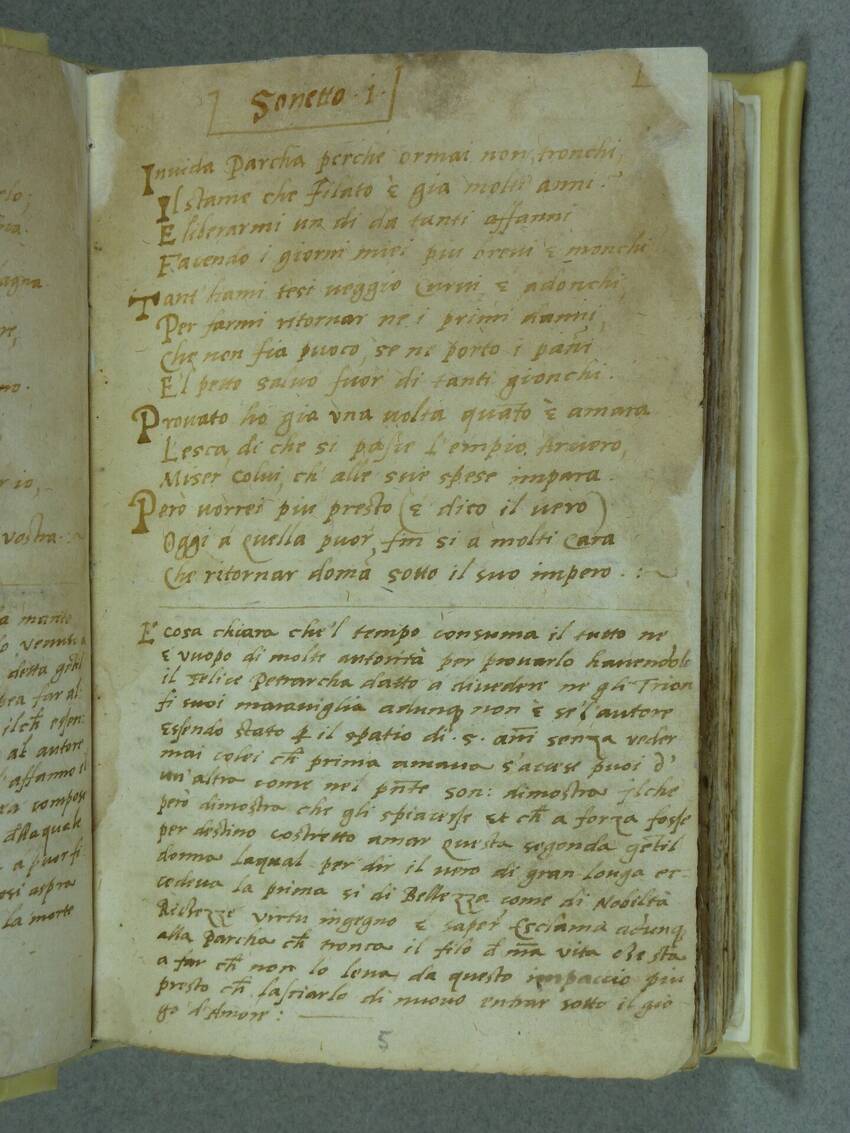 Sonetto · i ·
Inuida Parcha perche ormai non tronchi,
Il stame che filato è gia molti anni?
E liberarmi un di da tanti affanni
Facendo i giorni miei piu breui & monchi
Tant' hami tesi ueggio curui, & adonchi,
Per farmi ritornar ne i primi danni,
Che non fia puoco, se ne porto i pañi
E'l petto saluo fuor di tanti gionchi.
Prouato hò gia vna uolta quãto è amara
L'esca, di che si pasce l'empio Arciero,
Miser colui, ch' alle sue spese impara.
Però uorrei piu presto (& dico il uero)
Oggi à quella puor fin si à molti cara
Che ritornar domã sotto il suo impero . : ~
E cosa chiara che'l tempo consuma il tutto ne
è vuopo di molte autorità per prouarlo hauendole
il felice Petrarcha datto a diuedere ne gli Trion
fi suoi marauiglia adunq non è se l'autore
essendo stato ꝑ il spatio di .5. añi senza veder
mai colei ch̃ prima amaua s'accese puoi d'
un'altra come nel pñte son: dimostra ilche
però dimostra che gli spiacesse et ch̃ a forza fosse
per destino costretto amar questa segonda gẽtil
donna laqual per dir il uero di gran longa ec-
cedeua la prima si di Bellezza come di Nobiltà
Ricchezze virtu ingegno & saper Esclama adunq
alla Parcha ch̃ tronca il filo đ ñra vita che stà
a far ch̃ non lo leua da questo impaccio piu
presto ch̃ lasciarlo di nuouo entrar sotto il gio
go d'Amore :
5
elo;
agna.
re,
no.
r io,
vostra . : ~
a mante
lo venuta
detta gẽtil
far al
ilch̃ essen
al autore
affanno il
compose
đlla quale
a puor fi
osi aspra
la morte